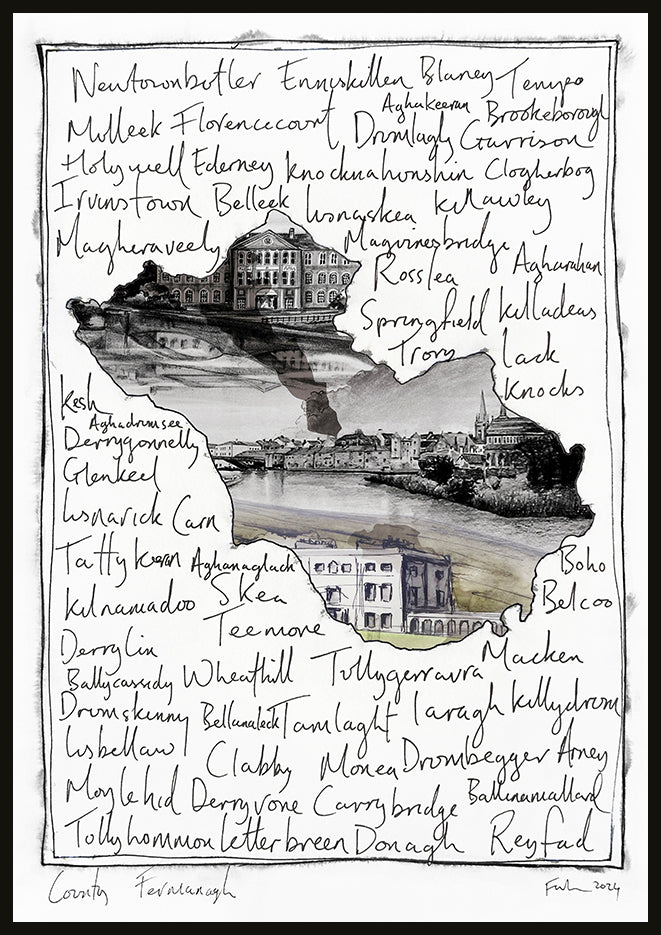 Newtownbutler Enniskillen Blaney Tempo
Aghakeeran Brookeborough
Mulleek Florencecourt Drumlaghy Garrison
Holywell Ederney Knocknahunshin Clogherbog
Irvinstown Belleek Lisnaskea Killawley
Magheraveely Maguiresbridge
Rosslea Agharahan
Springfield Killadeas
Trory Lack
Knocks
Kesh
Aghadrumsee
Derrygonnelly
Glenkeel
Lisnarick Carn
Tattykeeran Aghanaglack Boho
Kilnamadoo Skea Belcoo
Teemore
Derrylin Macken
Ballycassidy Wheathill Tullygerravra
Drumskinny Bellanaleck Tamlaght Laragh Killydrum
Lisbellaw Clabby Monea Drumbegger Arney
Moylehid Derryvone Carrybridge Ballinamallard
Tullyhommon Letterbreen Donagh Reyfad
County Fermanagh 2024